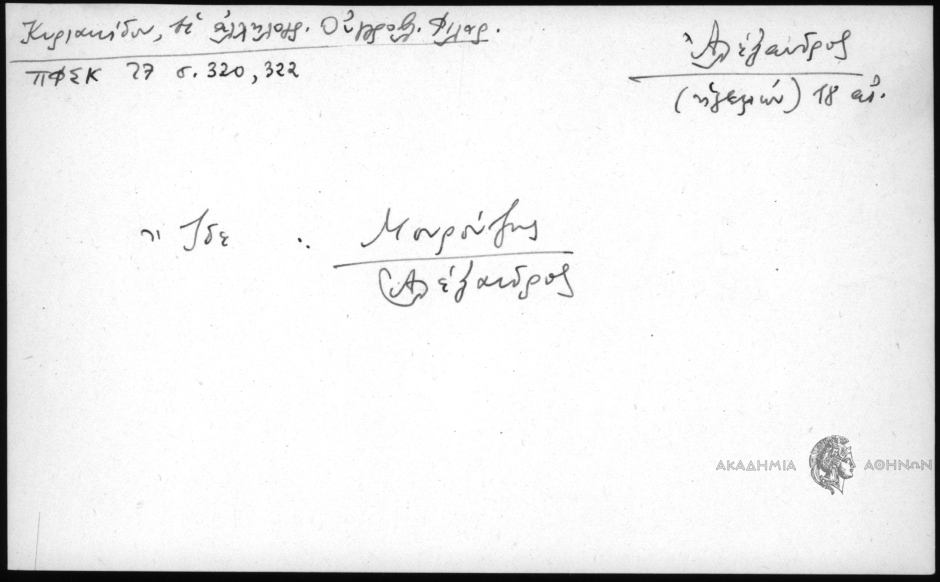 Κυριακίδου, Ἡ ἀλληλογρ. Οὑγγροβλ. Φιλαρ.
ΠΦΣΚ 27 σ. 320, 322
Ἀλέξανδρος
(ἡγεμών) 18 αἰ.
Ἰδε : Μουρούζης
(Ἀλέξανδρος
ΑΚΑΔΗΜΙΑ ΑΘΗΝΩΝ